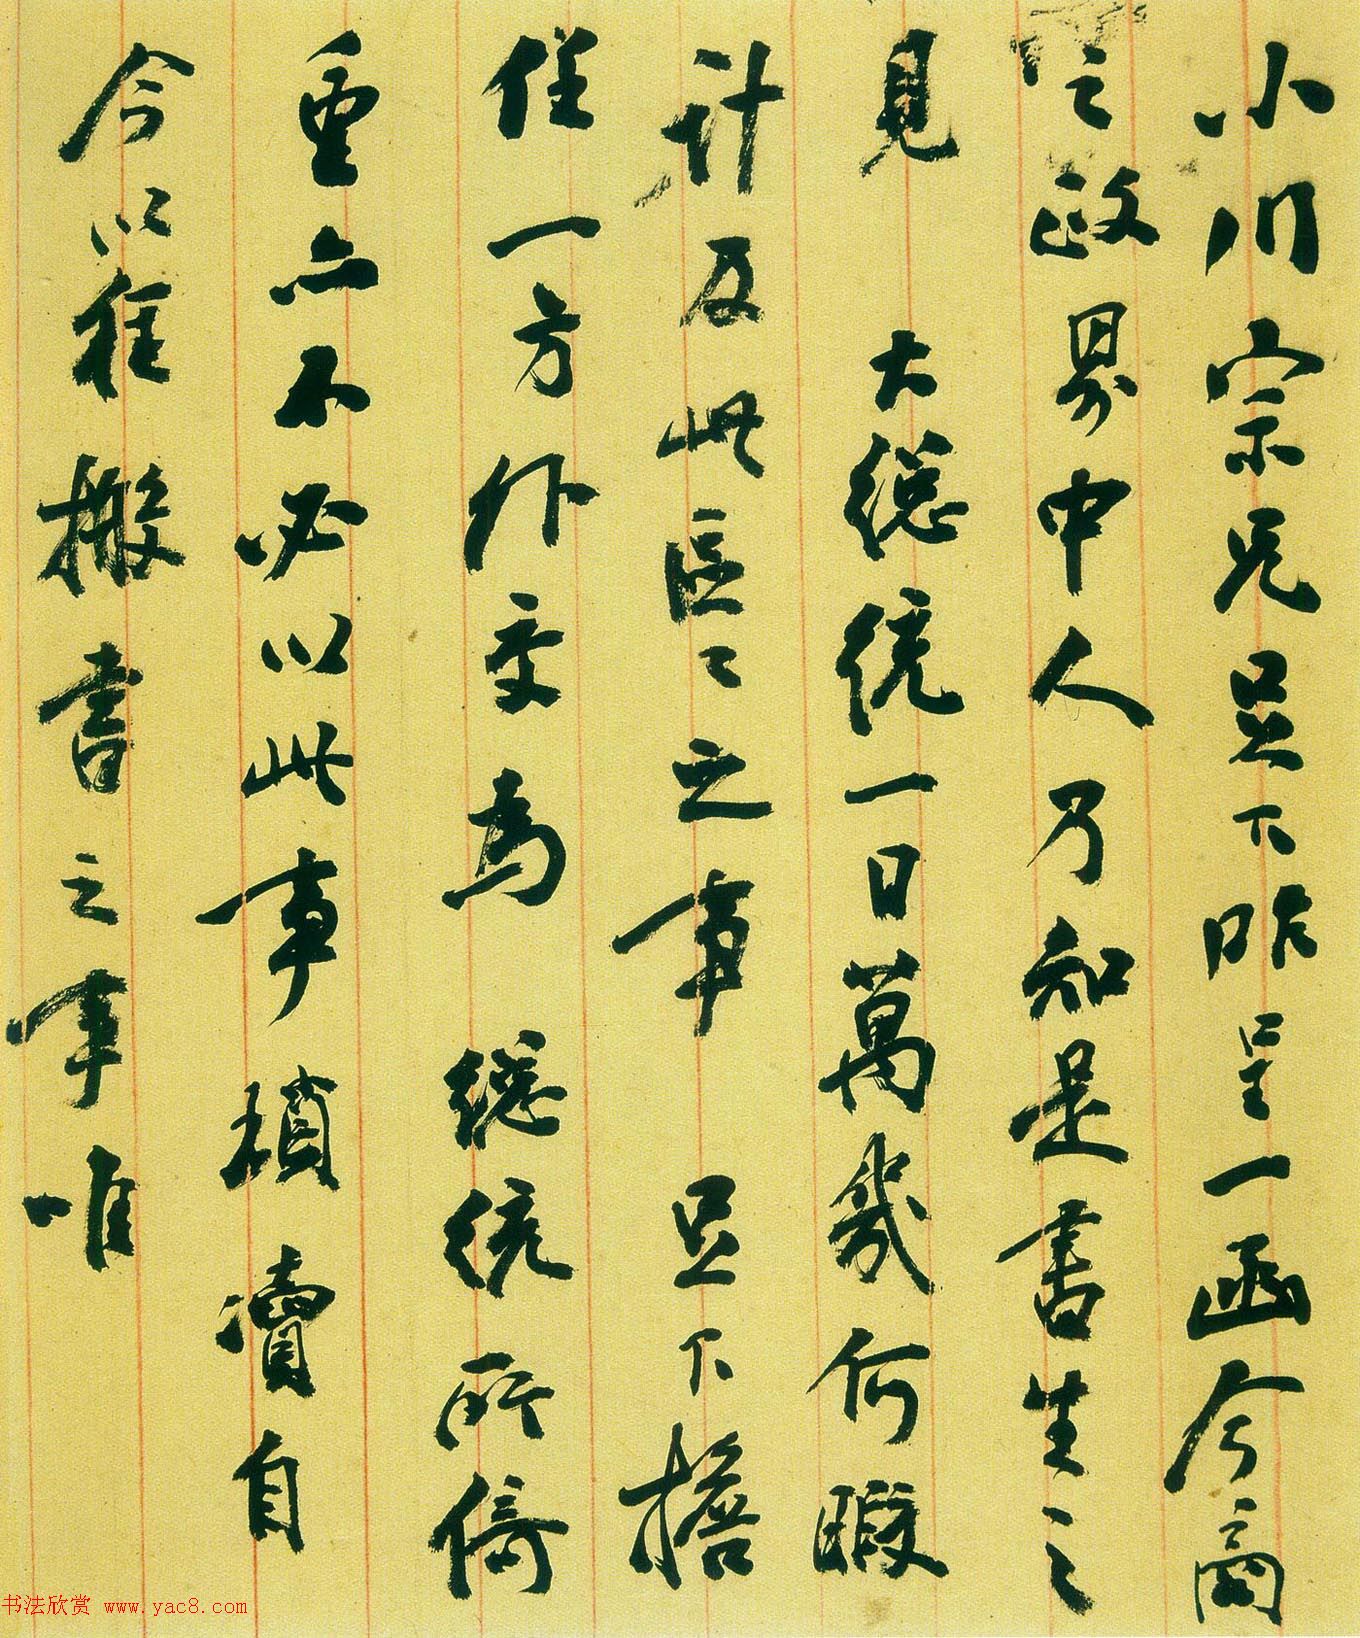 小川宗兄足下昨呈一函今商
之政界中人乃知是書生之
見 大總統一日萬幾何暇
計及此區々之事 足下擔
任一方外交為 總統所倚
重亦不必以此事瑣瀆自
今以往搬書之事唯
书法欣赏 www.yac8.com